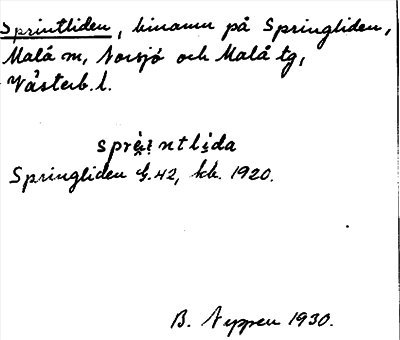 Sprintliden, binamn på Springliden,
Malå m, Norsjö och Malå tg,
Västerb. l.
sprintlida
Springliden G. 42, kb. 1920.
B. Neppen 1930.